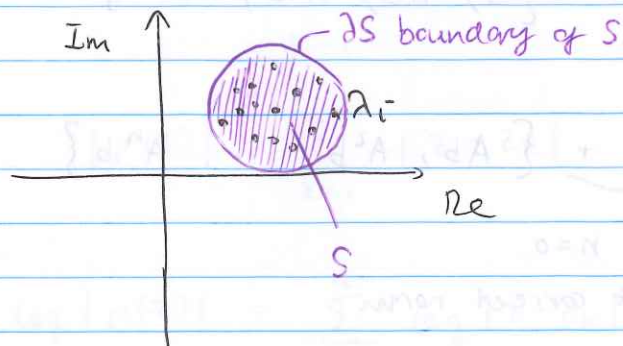 Im
∂S boundary of S
λi
Re
S